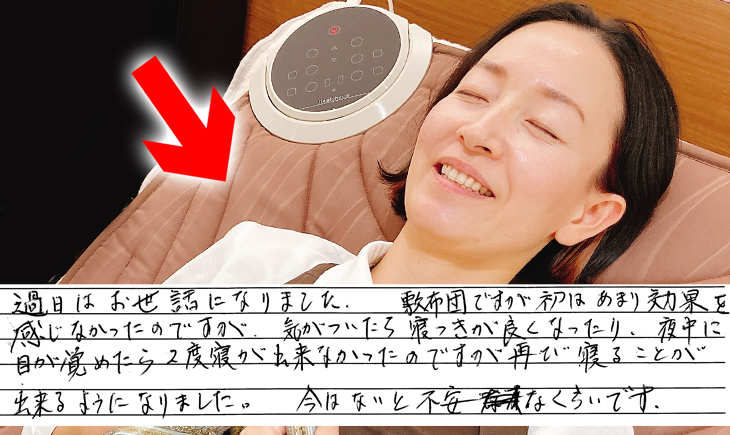 過日はお世話になりました. 敷布団ですが初はあまり効果を
感じなかったのですが、気がついたら寝つきが良くなったり、夜中に
目が覚めたら2度寝が出来なかったのですが再び寝ることが
出来るようになりました。 今はないと不安なくらいです.